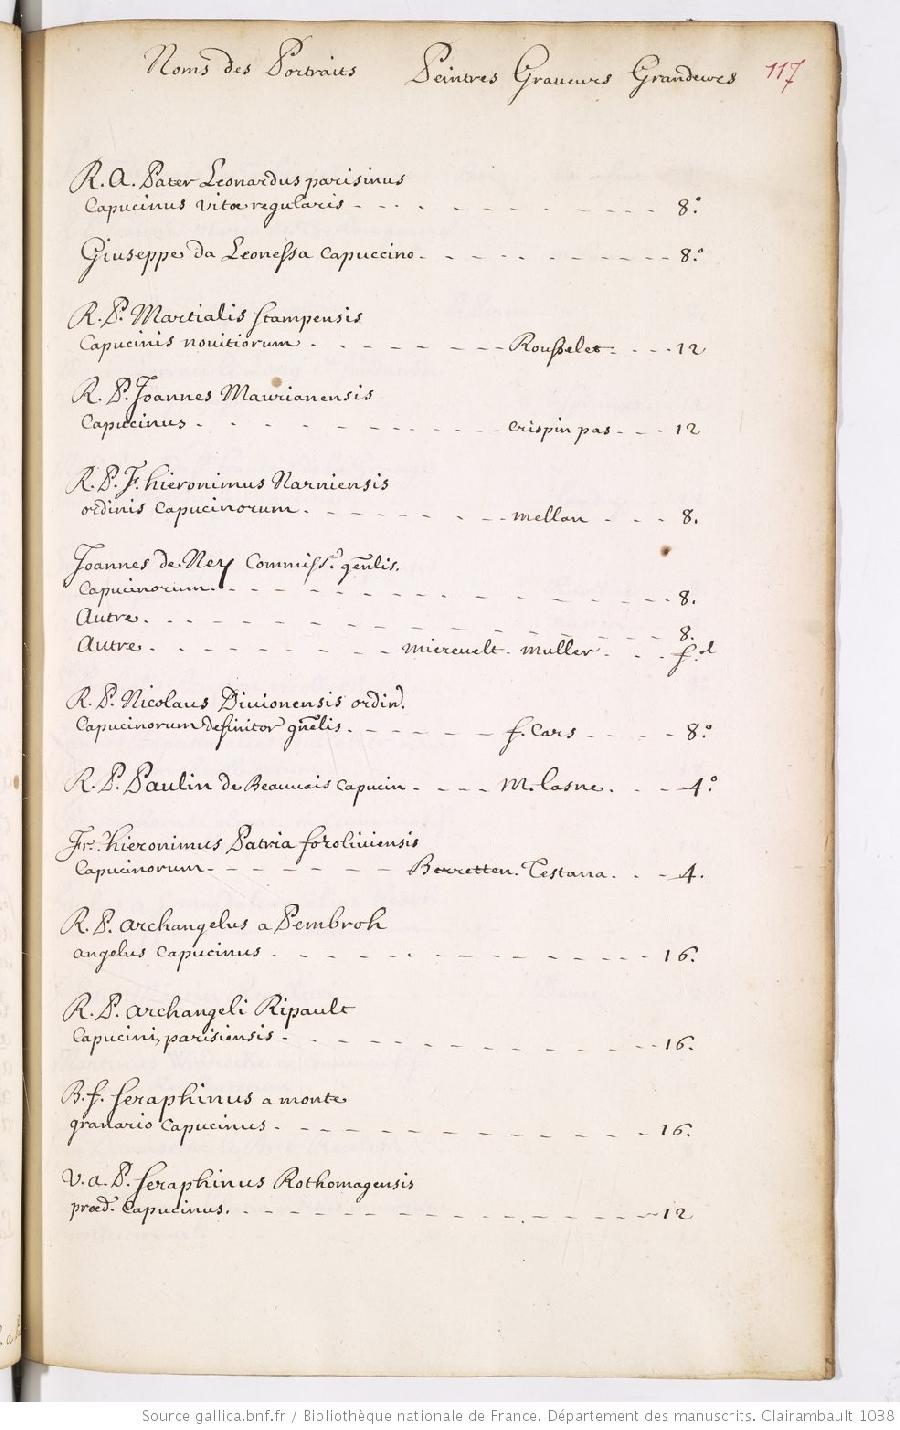 Noms des Portraits Peintres Graveurs Grandeurs 117
R. A. Pater Leonardus parisinus
Capucinus vitæ regularis - - - - - - - - 8.°
Giuseppe da Leonessa Capuccino - - - - - - - 8.°
R. P. Martialis stampensis
Capucinis novitiorum - - - - - - Rousselet - - - 12
R. P. Joannes Maurianensis
Capucinus - - - - - - - - Crispin pas - - - 12
R. P. F. hieronimus Narniensis
ordinis Capucinorum - - - - - - mellan - - - 8.
Joannes de Ney Commiss.r gñlis.
Capucinorum - - - - - - - - - 8.
Autre - - - - - - - - - - 8.
Autre - - - - - - - mierevelt. muller - - - f.ol
R. P. Nicolaus Divionensis ordin.
Capucinorum definitor gñelis - - - - - f. Cars - - - - 8.°
R. P. Paulin de Beauvais Capucin - - - - M. lasne - - - 4.°
Fr. hieronimus Patria foroliviensis
Capucinorum - - - - - - Berretten. Testana - - - 4.
R. P. archangelus a Pembroh
angolus Capucinus - - - - - - - - - 16.
R. P. archangeli Ripault
Capucini, parisiensis - - - - - - - - - 16.
B. f. seraphinus a monte
granario Capucinus - - - - - - - - - 16.
V. a. P. seraphinus Rothomagensis
præd. Capucinus - - - - - - - - - 12
Source gallica.bnf.fr / Bibliothèque nationale de France. Département des manuscrits. Clairambault 1038